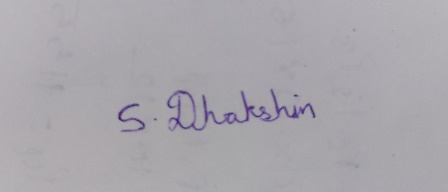 S. Dhakshin